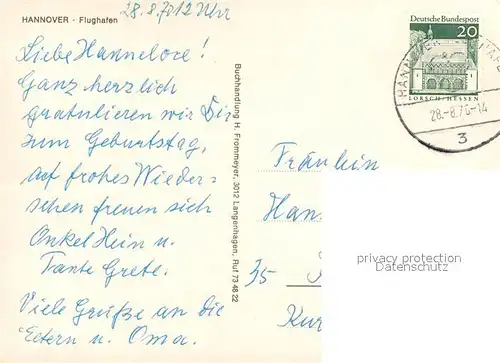 HANNOVER - Flughafen
28.8.70 12 Uhr
Liebe Hannelore!
Ganz herzlich
gratulieren wir Dir
zum Geburtstag,
auf frohes Wieder-
sehen freuen sich
Onkel Hein u.
Tante Grete.
Viele Grüße an die
Eltern u. Oma.
Buchhandlung H. Frommeyer, 3012 Langenhagen, Ruf 73 48 22
Deutsche Bundespost
20
LORSCH/HESSEN
28.-8.70-14
3
Fräulein
Han
35
Kur
privacy protection
Datenschutz